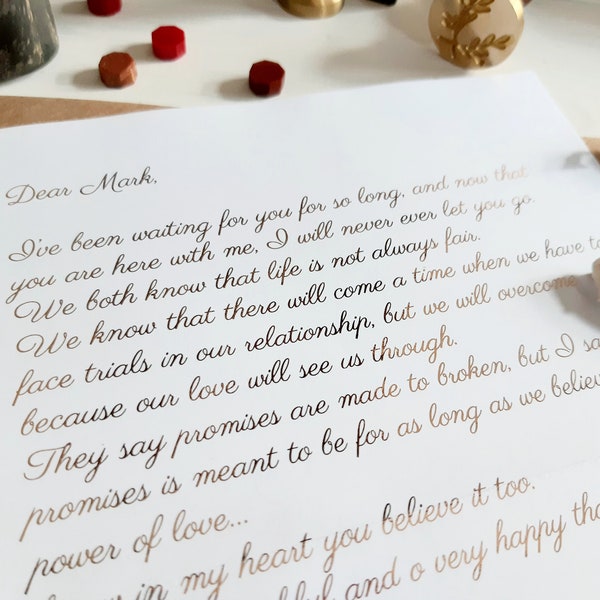 Dear Mark,
I've been waiting for you for so long, and now that
you are here with me, I will never ever let you go.
We both know that life is not always fair.
We know that there will come a time when we have to
face trials in our relationship, but we will overcome
because our love will see us through.
They say promises are made to broken, but I
promises is meant to be for as long as we
power of love...
in my heart you believe it too.
and o very happy